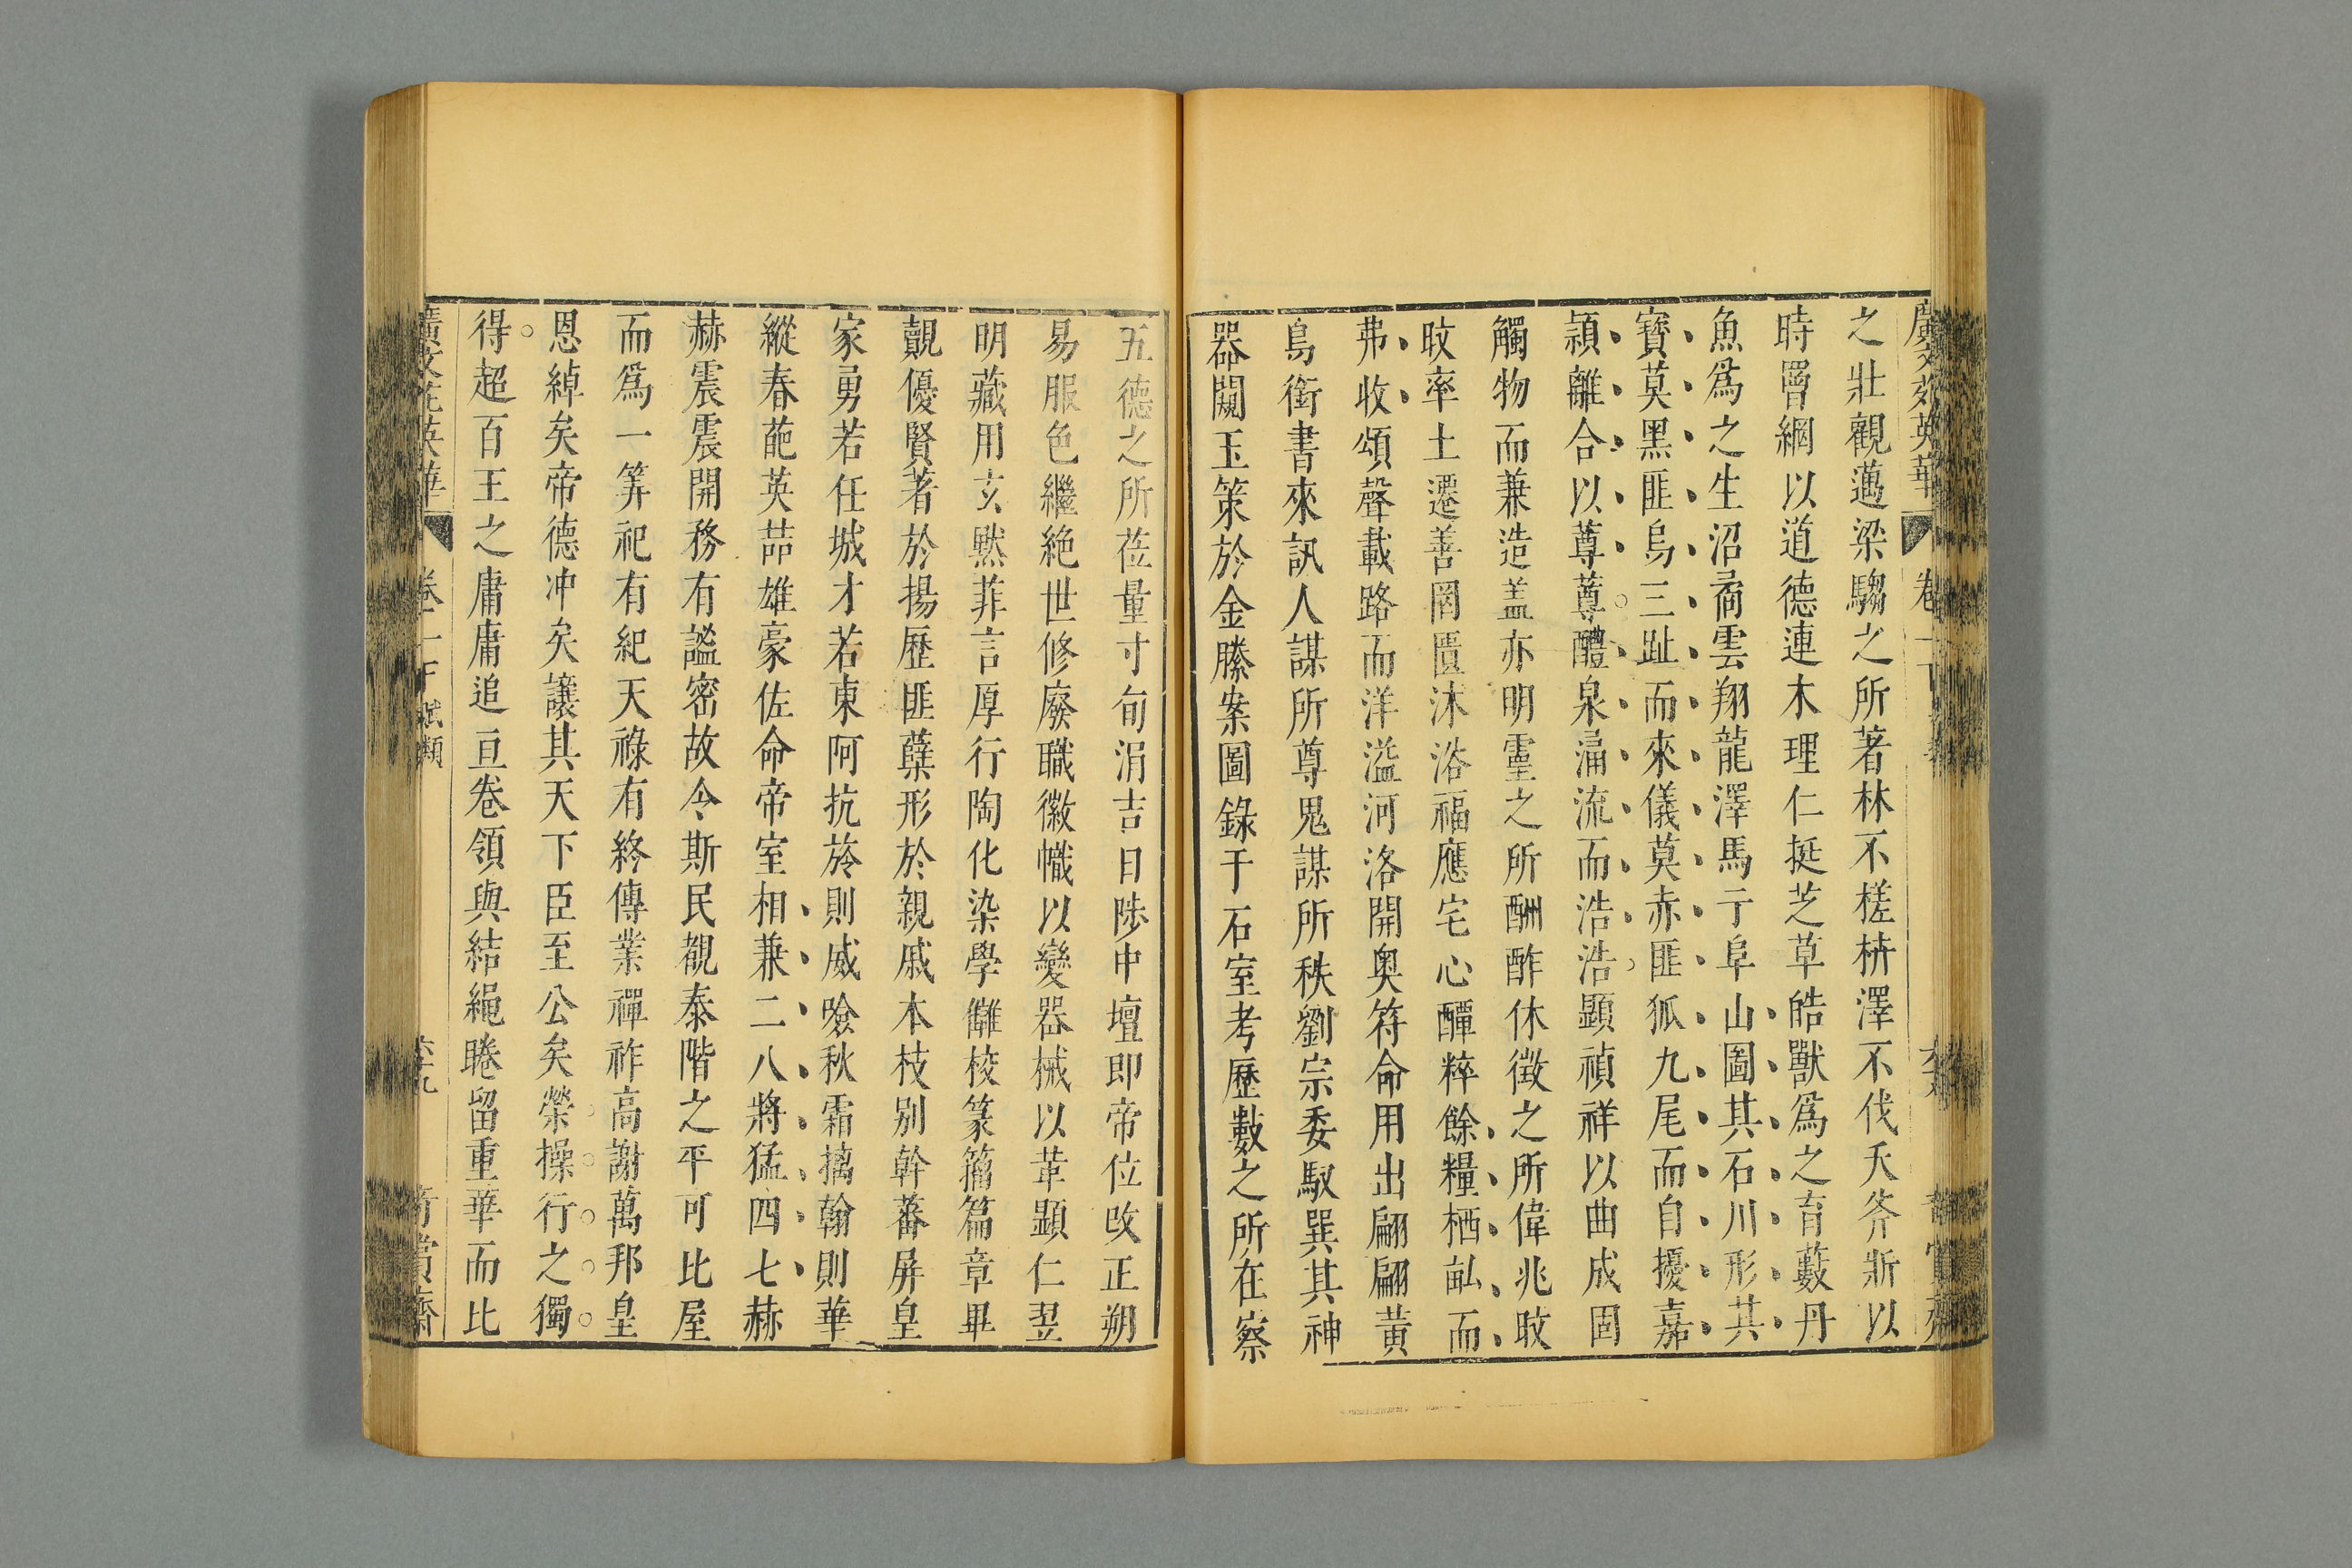 之壯觀邁梁騶之所著林不槎枿澤不伐夭斧斨以
時罾網以道德連木理仁挺芝草皓獸爲之育藪丹
魚爲之生沼矞雲翔龍澤馬亍阜山圖其石川形其
寶莫黑匪烏三趾而來儀莫赤匪狐九尾而自擾嘉
頴離合以蓴蓴醴泉湧流而浩浩顯禎祥以曲成固
觸物而兼造盖亦明靈之所酬酢休徵之所偉兆旼
旼率土遷善罔匱沐浴福應宅心醰粹餘糧栖畝而
弗收頌聲載路而洋溢河洛開奥符命用出翩翩黃
鳥銜書來訊人謀所尊鬼謀所秩劉宗委馭巽其神
器闚玉策於金縢案圖錄于石室考歷數之所在察
五德之所莅量寸旬涓吉日陟中壇即帝位改正朔
易服色繼絶世修廢職徽幟以變器械以革顯仁翌
明藏用玄黙菲言厚行陶化染學讎校篆籀篇章畢
覿優賢著於揚歷匪孽形於親戚本枝别幹蕃屏皇
家勇若任城才若東阿抗旍則威噞秋霜摛翰則華
縱春葩英喆雄豪佐命帝室相兼二八將猛四七赫
赫震震開務有謐密故令斯民覩泰階之平可比屋
而爲一筭祀有紀天祿有終傳業禪祚高謝萬邦皇
恩綽矣帝德冲矣讓其天下臣至公矣榮操行之獨
得超百王之庸庸追亘卷領與結繩睠留重華而比
廣文苑英華 卷 賦類